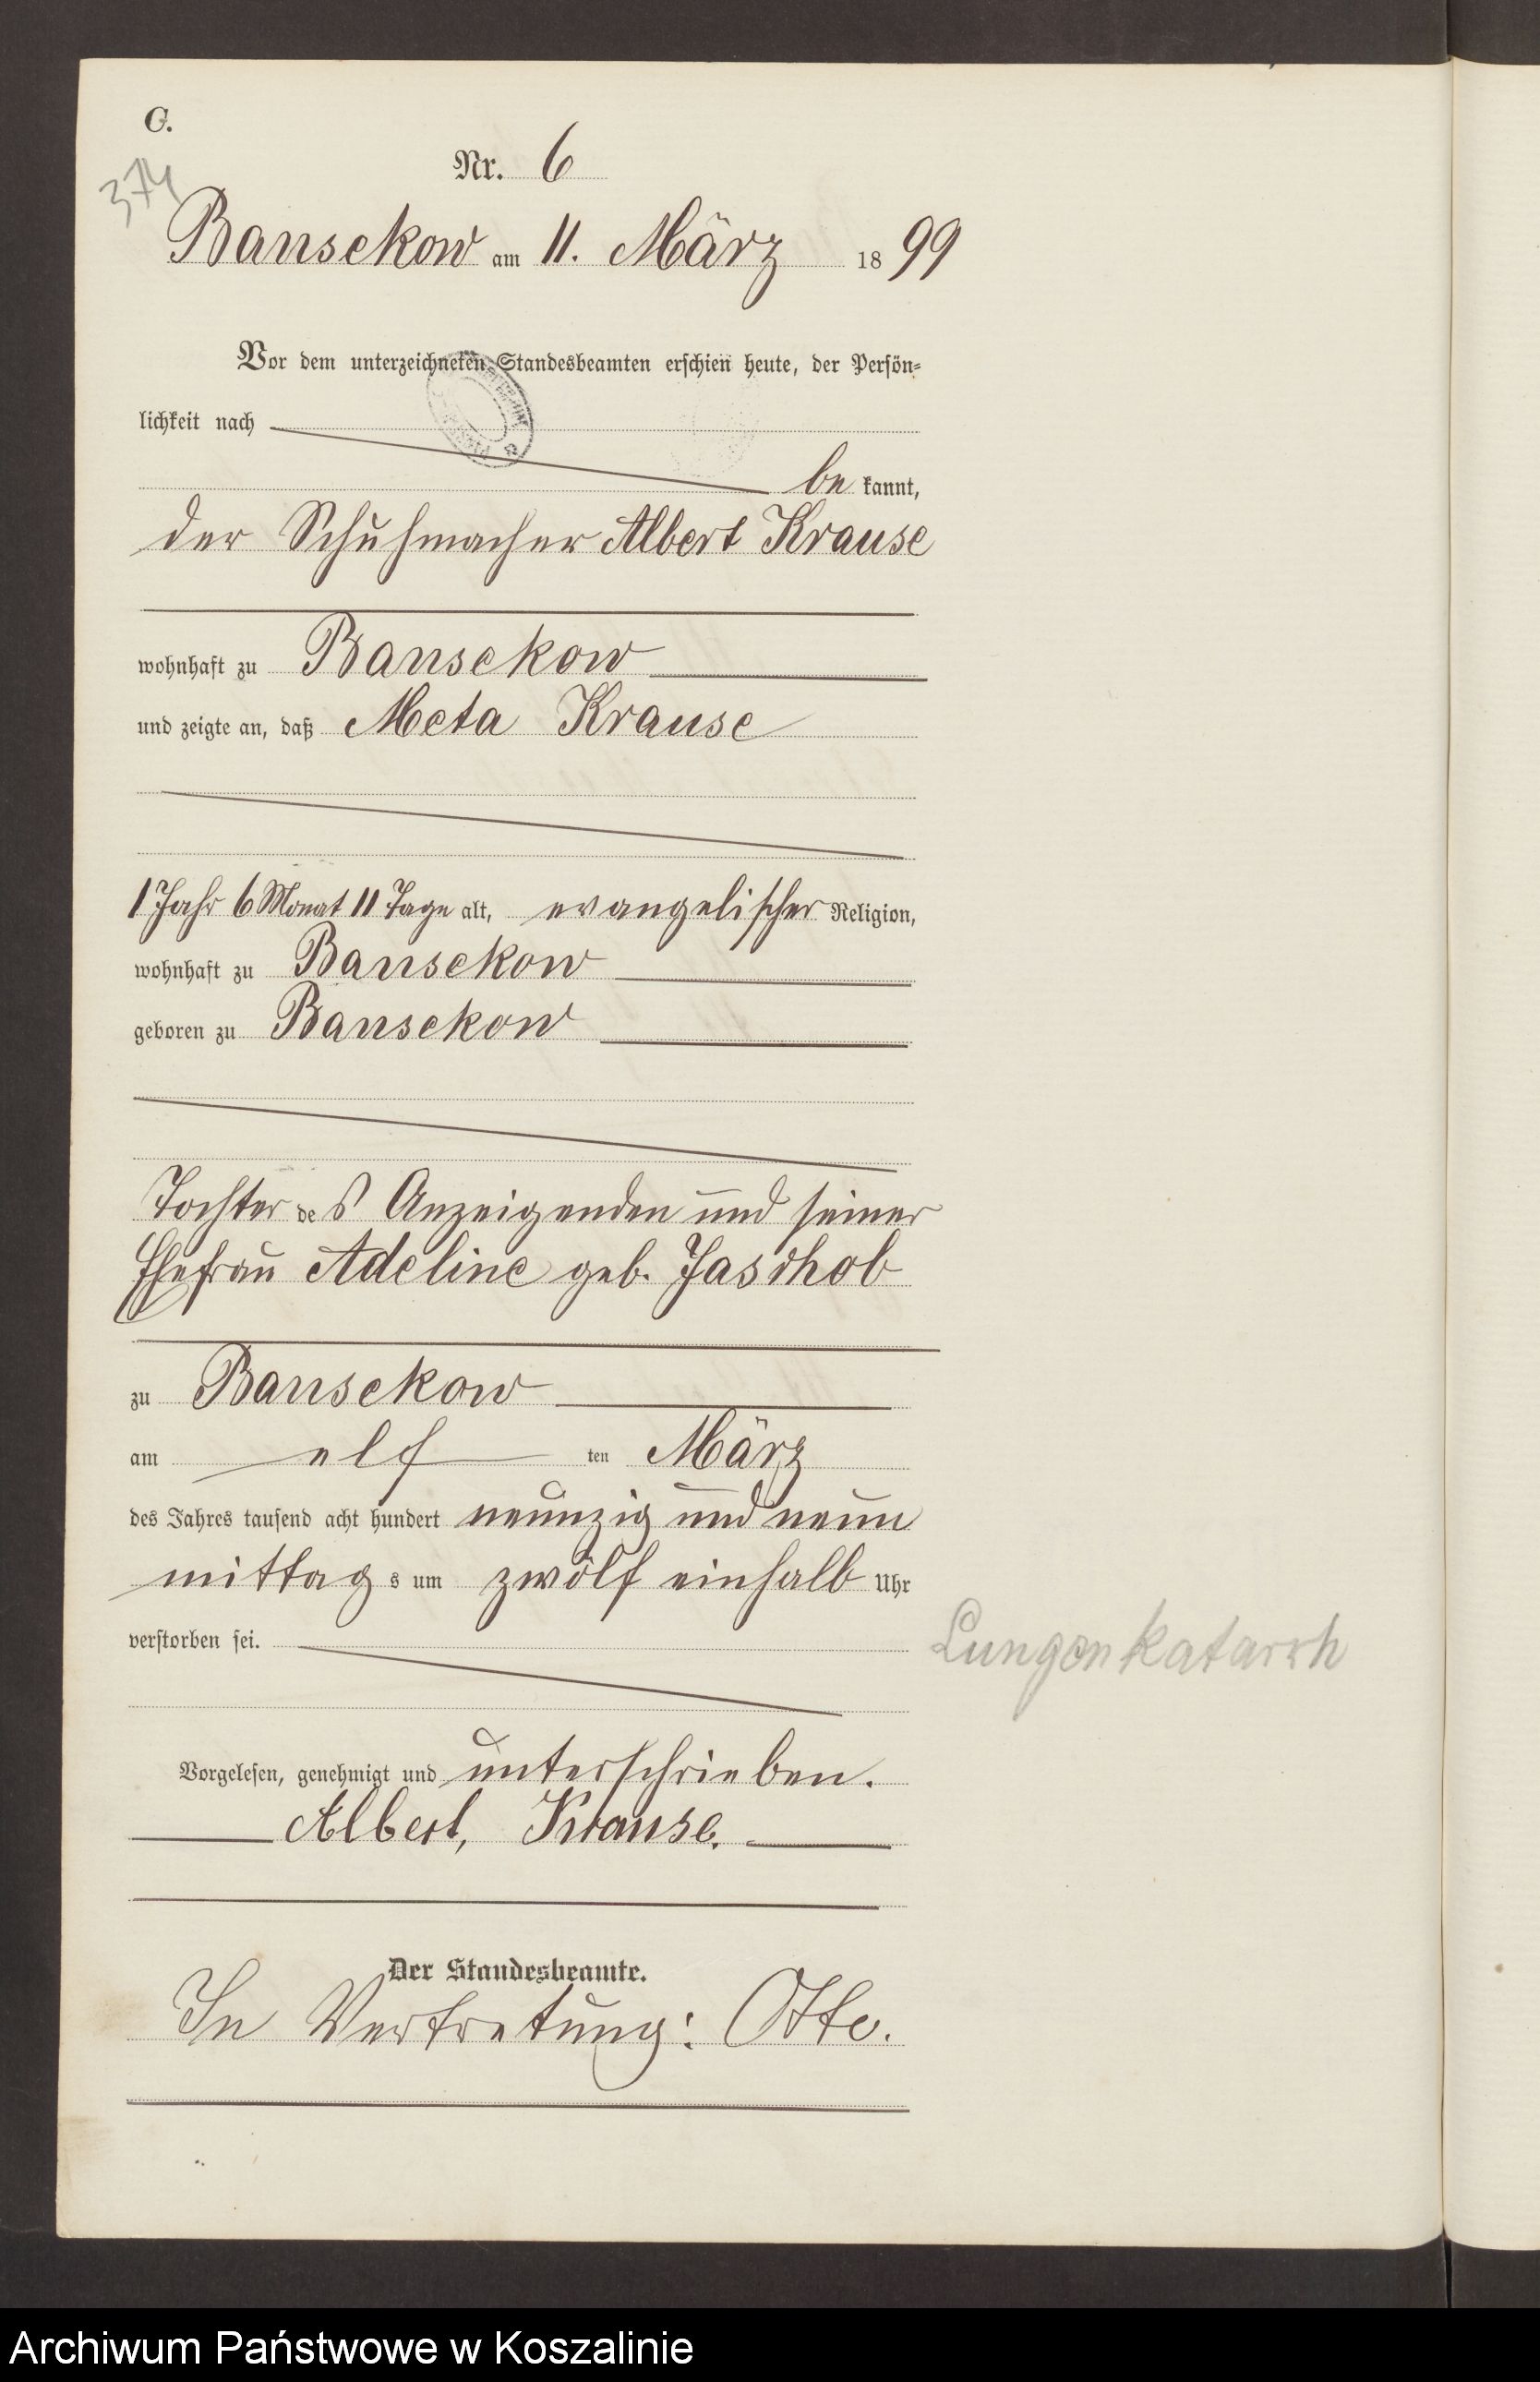 C.
374
Nr. 6
Bansekow am 11. März 1899
Vor dem unterzeichneten Standesbeamten erschien heute, der Persön-
lichkeit nach
be kannt,
der Schuhmacher Albert Krause
wohnhaft zu Bansekow
und zeigte an, daß Meta Krause
1 Jahr 6 Monat 11 Tage alt, evangelischer Religion,
wohnhaft zu Bansekow
geboren zu Bansekow
Tochter des Anzeigenden und seiner
Ehefrau Adeline geb. Jaschob
zu Bansekow
am elf ten März
des Jahres tausend acht hundert neunzig und neun
mittags um zwölf einhalb Uhr
verstorben sei.
Lungenkatarrh
Vorgelesen, genehmigt und unterschrieben.
Albert, Krause.
Der Standesbeamte.
In Vertretung: Otto.
Archiwum Państwowe w Koszalinie